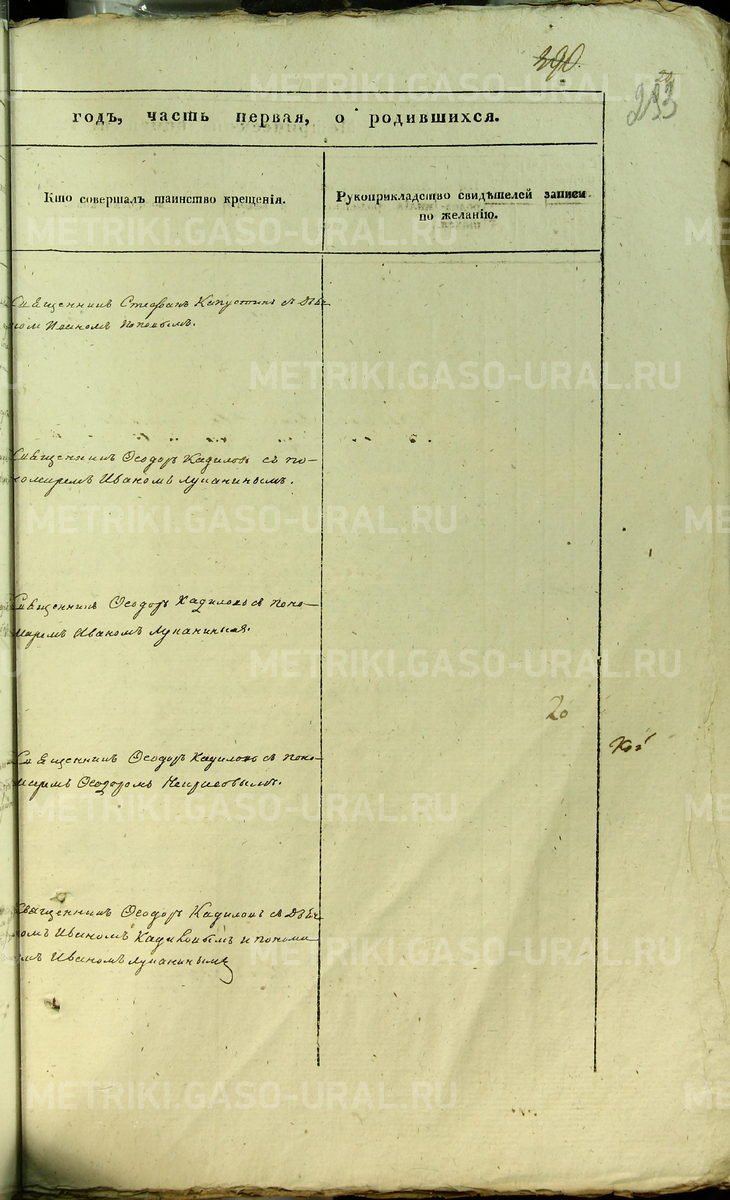 390.
293
годъ, часть первая, о родившихся.
Кто совершалъ таинство крещенія.
Рукоприкладство свидѣтелей записи
по желанію.
Священникъ Стефанъ Капустинъ съ Дья-
комъ Иваномъ Поповымъ.
Священникъ Ѳеодоръ Кадиловъ съ по-
номаремъ Иваномъ Лупанинымъ.
Священникъ Ѳеодоръ Кадиловъ съ поно-
маремъ Иваномъ Лупанинымъ.
20
Священникъ Ѳеодоръ Кадиловъ съ поно-
маремъ Ѳеодоромъ
Священникъ Ѳеодоръ Кадиловъ съ Дьяч
комъ Иваномъ Кадиловымъ и понома
емъ Иваномъ Лупанинымъ
METRIKI.GASO-URAL.RU